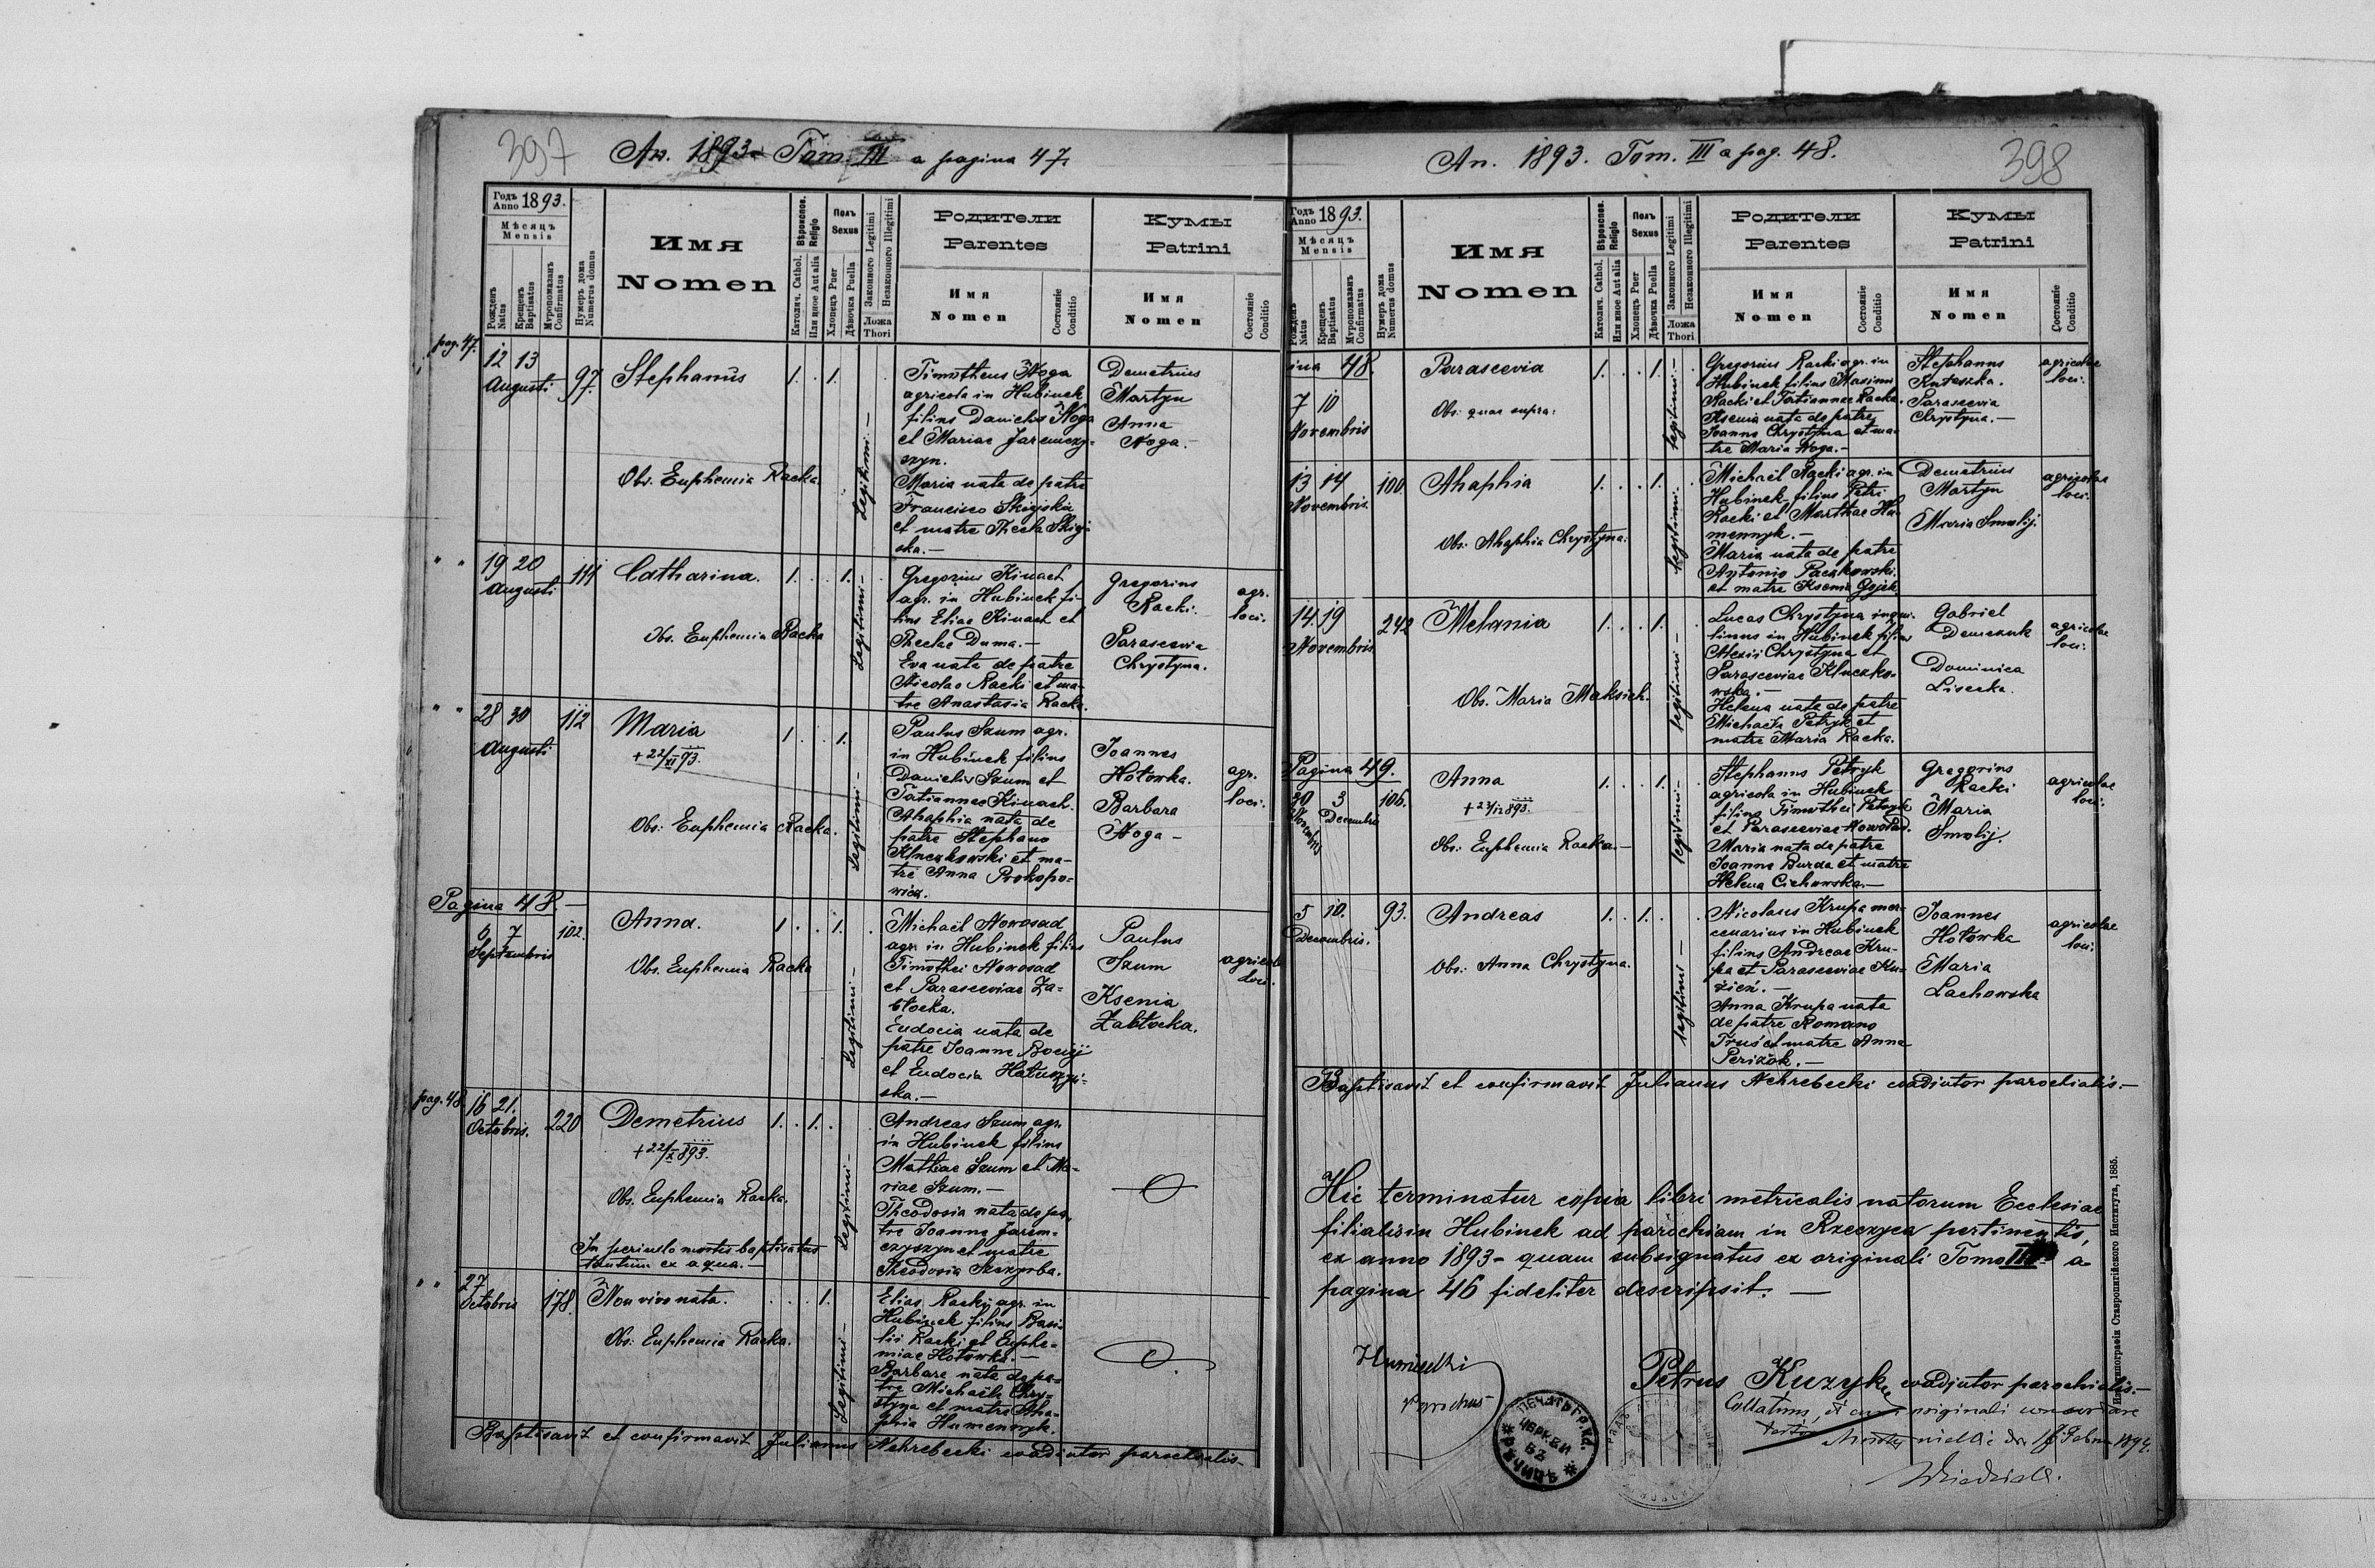 397
An. 1893 Tom. III a pagina 47.
Годъ Anno 1893.
Мѣсяць Mensis
Рожденъ Natus
Крещенъ Baptisatus
Мѵропомазанъ Confirmatus
Нумеръ дома Numerus domus
Имя
Nomen
Вѣроиспов. Religio
Католич. Cathol.
Или иное Aut alia
Полъ Sexus
Хлопець Puer
Дѣвочка Puella
Законного Legitimi
Незаконного Illegitimi
Ложа Thori
Родители
Parentes
Имя
Nomen
Состояніе Conditio
Кумы
Patrini
Имя
Nomen
Состояніе Conditio
pag. 47.
12 13
Augusti
97.
Stephanus
Obs. Euphemia Racka
1. . 1.
Legitimi
Timotheus Noga
agricola in Hubinek
filius Danielis Noga
et Mariae Jaremczy-
szyn.
Maria nata de patre
Francisco
et matre Thecla
ska.—
Demetrius
Martyn
Anna
Noga.—
" "
19 20
Augusti
111
Catharina.
Obs. Euphemia Racka
1. . . 1.
Legitimi
Gregorius Kinach
agr. in Hubinek fi-
lius Eliae Kinach et
Theclae Duma.—
Eva nata de patre
Nicolao Racki et ma-
tre Anastasia Racka.
Gregorius
Racki.
Parascevia
Chrystyna.
agr.
loci.
" "
28 30
Augusti
112
Maria
+ 22/XI 93.
Obs: Euphemia Racka.
1 . . 1.
Legitimi
Paulus Szum agr.
in Hubinek filius
Danielis Szum et
Tatiannae Kinach.
Ahaphia nata de
patre Stephano
Kluczkowski et ma-
tre Anna Prokopo-
wicz.
Joannes
Hołowka.
Barbara
Noga —
agr.
loci.
Pagina 48.—
6 7
Septembris
102.
Anna.
Obs. Euphemia Racka
1 . . 1.
Legitimi
Michaël Nowosad
agr. in Hubinek filius
Timothei Nowosad
et Parasceviae Za=
błocka.
Eudocia nata de
patre Joanne
et Eudocia
ska.—
Paulus
Szum
Ksenia
Zabłocka.
agricola
loci.
pag. 48.
16 21.
Octobris.
220
Demetrius
+ 22/X 893.
Obs. Euphemia Racka.
In periculo mortis baptisatus
tantum ex aqua.—
1. . 1.
Legitimi
Andreas Szum agr.
in Hubinek filius
Mathiae Szum et Ma-
riae Szum.—
Theodosia nata de pa-
tre Joanne Jarem-
czyszyn et matre
Theodosia Szczyrba.
" "
27
Octobris
178.
Non vivo nata.
Obs: Euphemia Racka.
1.
Legitimi
Elias Racki agr. in
Hubinek filius Basi-
lii Racki et Euphe-
miae Hołowka.—
Barbara nata de pa-
tre Michaële Chry-
styna et matre Aha-
phia Humennyk.
Baptisavit et confirmavit Julianus Nehrebecki coadiutor parochialis—
398
An. 1893. Tom. III a pag. 48.
Годъ Anno 1893.
Мѣсяць Mensis
Рожденъ Natus
Крещенъ Baptisatus
Мѵропомазанъ Confirmatus
Нумеръ дома Numerus domus
Имя
Nomen
Вѣроиспов. Religio
Католич. Cathol.
Или иное Aut alia
Полъ Sexus
Хлопець Puer
Дѣвочка Puella
Законного Legitimi
Незаконного Illegitimi
Ложа Thori
Родители
Parentes
Имя
Nomen
Состояніе Conditio
Кумы
Patrini
Имя
Nomen
Состояніе Conditio
ina 48.
7 10
Novembris
Parascevia
Obs: quae supra:
1. . . 1.
Legitimi —
Gregorius Racki agr. in
Hubinek filius Maximi
Racki et Tatiannae Racka.
Ksenia nata de patre
Joanne Chrystyna et ma-
tre Maria Noga.—
Stephanus
Parascevia
Chrystyna.—
agricolae
loci.
13 14
Novembris.
100.
Ahaphia
Obs: Ahaphia Chrystyna.
1. . . 1.
Legitimi.
Michaël Racki agr. in
Hubinek filius Petri
Racki et Marthae Hu-
mennyk.—
Maria nata de patre
Antonio Paczkowski.
et matre Ksenia
Demetrius
Martyn
Maria Smolij.
agricolae
loci.
14. 19
Novembris
242
Melania
Obs. Maria Maksich.
1. . . 1.
Legitimi —
Lucas Chrystyna inqui-
linus in Hubinek filius
Alexii Chrystyna et
Parasceviae Kluczko-
wska.—
Helena nata de patre
Michaële Petryk et
matre Maria Racka.
Gabriel
Demczuk
Dominica
Lisecka.
agricolae
loci.
Pagina 49.
30 3
Novembris Decembris
106.
Anna
+ 23/12 893.
Obs: Euphemia Racka.—
1. . . 1.
Legitimi —
Stephanus Petryk
agricola in Hubinek
filius Timothei Petryk
et Parasceviae Nowosad.
Maria nata de patre
Joanne Burda et matre
Helena Cichowska.—
Gregorius
Racki
Maria
Smolij.
agricolae
loci.
5 10.
Decembris.
93.
Andreas
Obs: Anna Chrystyna.
1. . 1.
Legitimi —
Nicolaus Krupa mer-
cenarius in Hubinek
filius Andreae Kru-
pa et Parasceviae Ku-
zień.—
Anna Krupa nata
de patre Romano
Truś et matre Anna
Perizok.—
Joannes
Hołowka
Maria
Lachowska
agricolae
loci.
Baptisavit et confirmavit Julianus Nehrebecki coadiutor parochialis.—
Hic terminatur copia libri metricalis natorum Ecclesiae
filialis in Hubinek ad parochiam in Rzeczyca pertinentis,
ex anno 1893 - quam subsignatus ex originali Tomo III a
pagina 46 fideliter descripsit.—
parochus
Petrus Kuzyk coadjutor parochialis.—
Collatum, et cum originali concordare
1894.
ПЕЧАТЬ ГР. КАΘ.
ЦЕРКВИ
ВЪ
РѢЧИЦѢ
Изъ типографіи Ставропигійского Института, 1885.